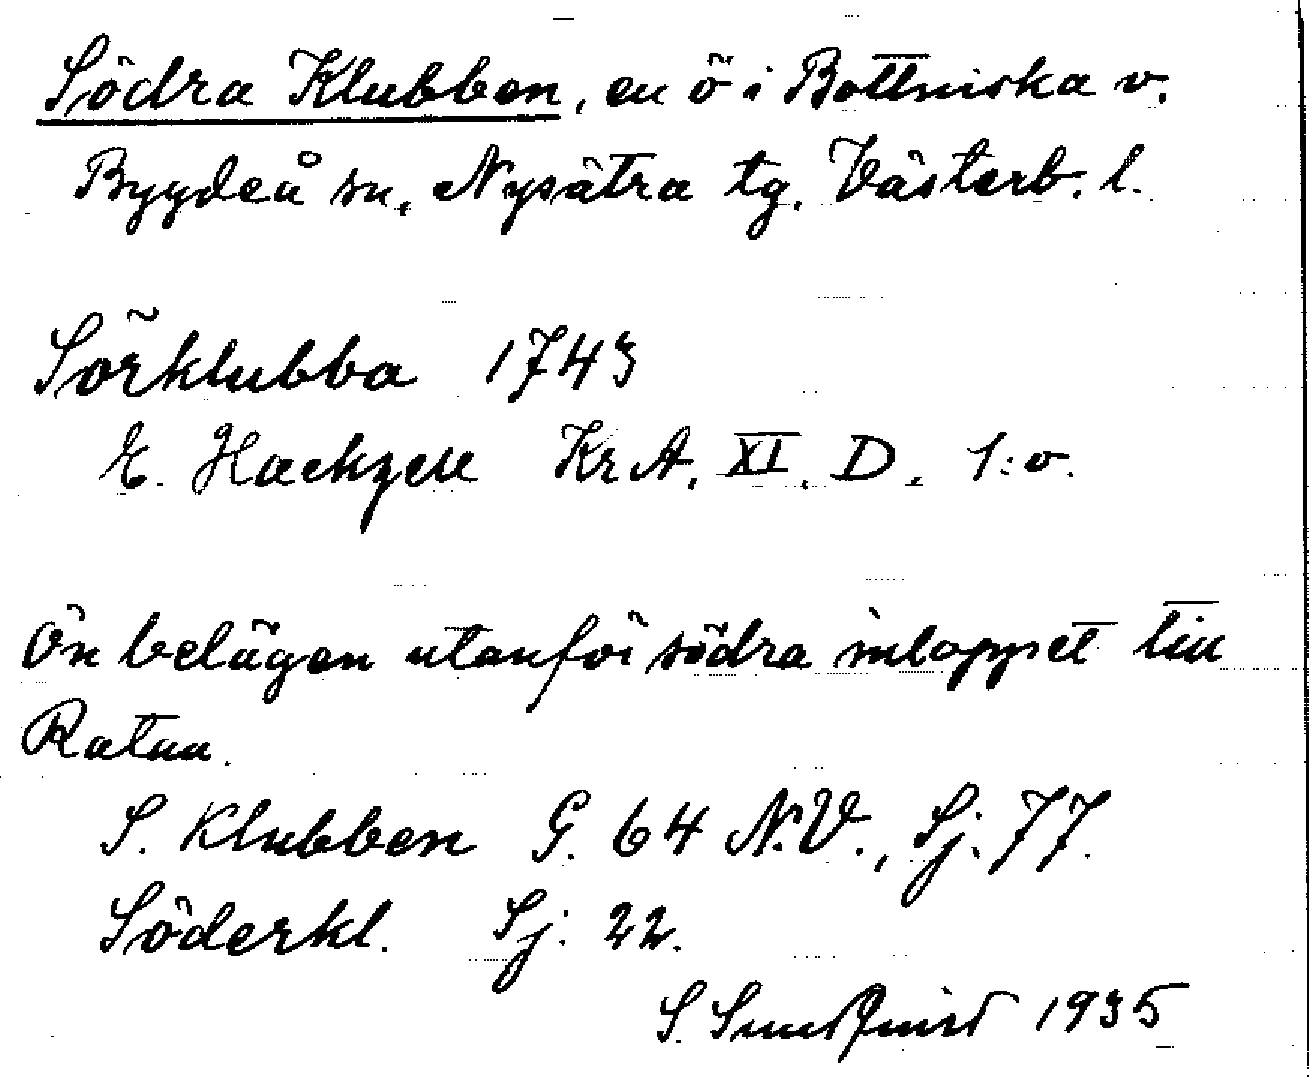 Södra Klubben, en ö i Bottniska v.
Bygdeå sn, Nysätra tg. Västerb. l.
Sörklubba 1743
E. Hackzell KrA. XI. D. 1:v.
Ön belägen utanför södra inloppet till
Ratan.
S. Klubben G. 64 N.V., Sj. 77.
Söderkl. Sj. 22.
S. Sundquist 1935